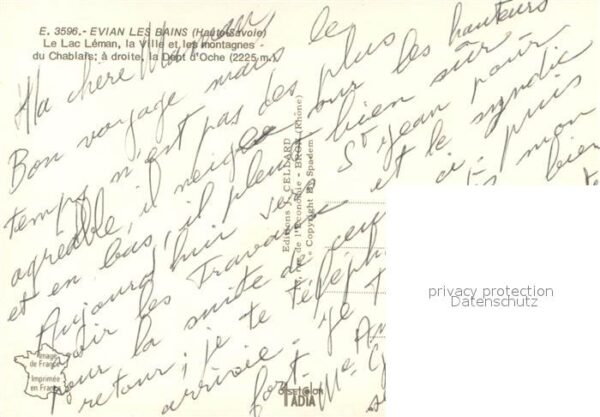 E. 3596.- EVIAN LES BAINS (Haute-Savoie)
Le Lac Léman, la Ville et les montagnes
du Chablais; à droite, la Dent d'Oche (2225 m.)
Ma chère Maman
Bon voyage mais le
temps n'est pas des plus
agréable, il neige sur les hauteurs
et en bas, il pleut bien sûr.
Aujourd'hui vers St Jean pour
voir les Travaux et le syndic
pour la suite de ci- puis
retour; je te téléph mon
arrivée. je T bien
fort. Me An
Editions J. CELLARD
rue de l'Economie - BRON (Rhône)
« Copyright By Spadem »
Image
de France
Imprimée
en France
OFFSETCOLOR
IADIA
privacy protection
Datenschutz